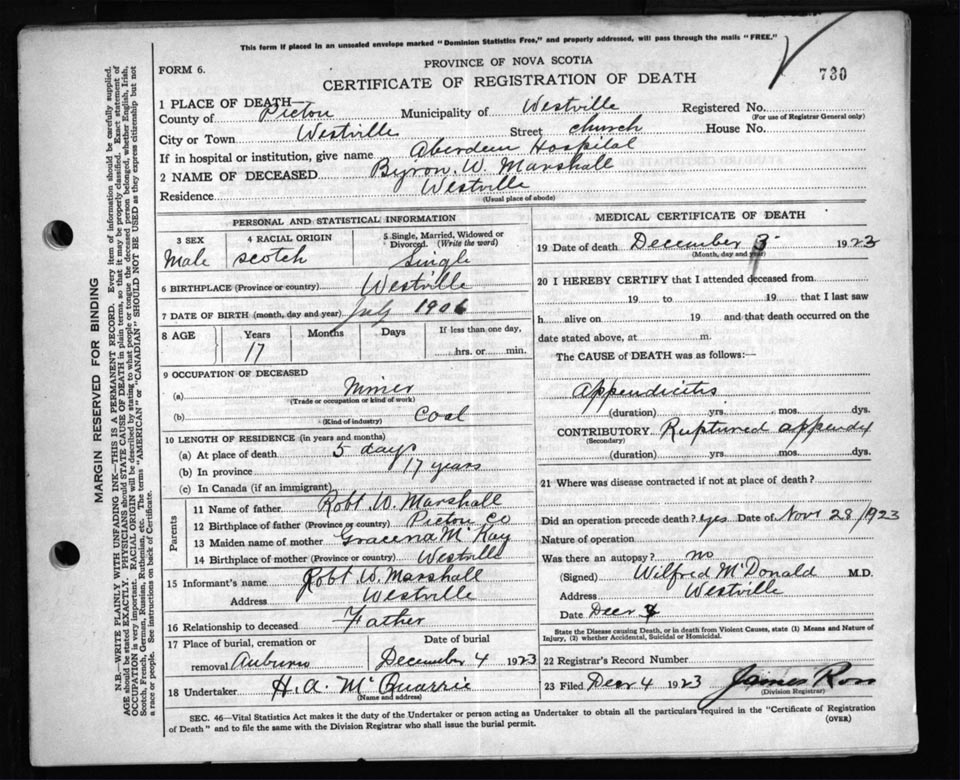 This form if placed in an unsealed envelope marked "Dominion Statistics Free," and properly addressed, will pass through the mails "FREE."
PROVINCE OF NOVA SCOTIA
FORM 6.
CERTIFICATE OF REGISTRATION OF DEATH
730
1 PLACE OF DEATH
County of Pictou Municipality of Westville Registered No.
(For use of Registrar General only)
City or Town Westville Street church House No.
If in hospital or institution, give name Aberdeen Hospital
2 NAME OF DECEASED Byron. W. Marshall
Residence Westville
(Usual place of abode)
PERSONAL AND STATISTICAL INFORMATION
3 SEX 4 RACIAL ORIGIN 5 Single, Married, Widowed or Divorced. (Write the word)
Male Scotch Single
6 BIRTHPLACE (Province or country) Westville
7 DATE OF BIRTH (month, day and year) July 1906
8 AGE Years Months Days If less than one day,
17 hrs. or min.
9 OCCUPATION OF DECEASED
(a) Miner
(Trade or occupation or kind of work)
(b) Coal
(Kind of industry)
10 LENGTH OF RESIDENCE (in years and months)
(a) At place of death 5 days
(b) In province 17 years
(c) In Canada (if an immigrant)
Parents
11 Name of father Robt W. Marshall
12 Birthplace of father (Province or country) Pictou Co
13 Maiden name of mother Gracena McKay
14 Birthplace of mother (Province or country) Westville
15 Informant's name Robt. W. Marshall
Address Westville
16 Relationship to deceased Father
17 Place of burial, cremation or Date of burial
removal Auburn December 4 1923
18 Undertaker H. A. McQuarrie
(Name and address)
MEDICAL CERTIFICATE OF DEATH
19 Date of death December 3 1923
(Month, day and year)
20 I HEREBY CERTIFY that I attended deceased from
19 to 19 that I last saw
h alive on 19 and that death occurred on the
date stated above, at m.
The CAUSE of DEATH was as follows:—
Appendicitis
(duration) yrs. mos. dys.
CONTRIBUTORY Ruptured appendix
(Secondary)
(duration) yrs. mos. dys.
21 Where was disease contracted if not at place of death?
Did an operation precede death? yes Date of Novr 28/1923
Nature of operation
Was there an autopsy? no
(Signed) Wilfred McDonald M.D.
Address Westville
Date Decr 4
State the Disease causing Death, or in death from Violent Causes, state (1) Means and Nature of
Injury, (2) whether Accidental, Suicidal or Homicidal.
22 Registrar's Record Number
23 Filed Decr 4 1923 James Ross
(Division Registrar)
SEC. 46—Vital Statistics Act makes it the duty of the Undertaker or person acting as Undertaker to obtain all the particulars required in the "Certificate of Registration
of Death" and to file the same with the Division Registrar who shall issue the burial permit. (OVER)
MARGIN RESERVED FOR BINDING
N.B.—WRITE PLAINLY WITH UNFADING INK—THIS IS A PERMANENT RECORD. Every item of information should be carefully supplied.
AGE should be stated EXACTLY. PHYSICIANS should STATE CAUSE OF DEATH in plain terms, so that it may be properly classified. Exact statement of
OCCUPATION is very important. RACIAL ORIGIN will be described by stating to what people or tongue the deceased person belonged, whether English, Irish,
Scotch, French, German, Russian, Ruthenian, etc. The terms "AMERICAN" or "CANADIAN" SHOULD NOT BE USED as they express citizenship but not
a race or people. See instructions on back of Certificate.